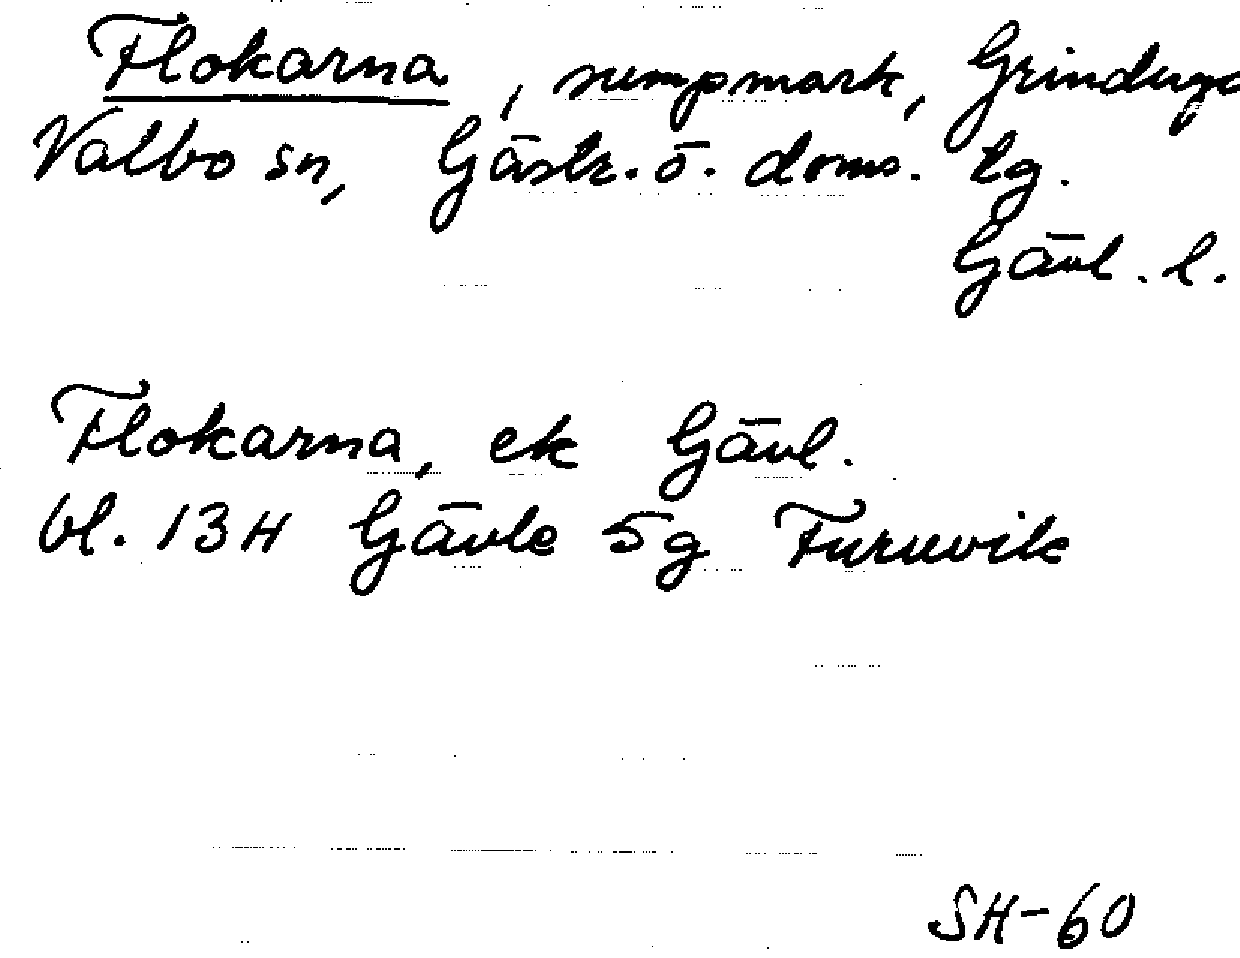 Flokarna, sumpmark, Grinduga
Valbo sn, Gästr. ö. doms. lg.
Gävl. l.
Flokarna, ek Gävl.
bl. 13H Gävle 5g Furuvik
SH-60